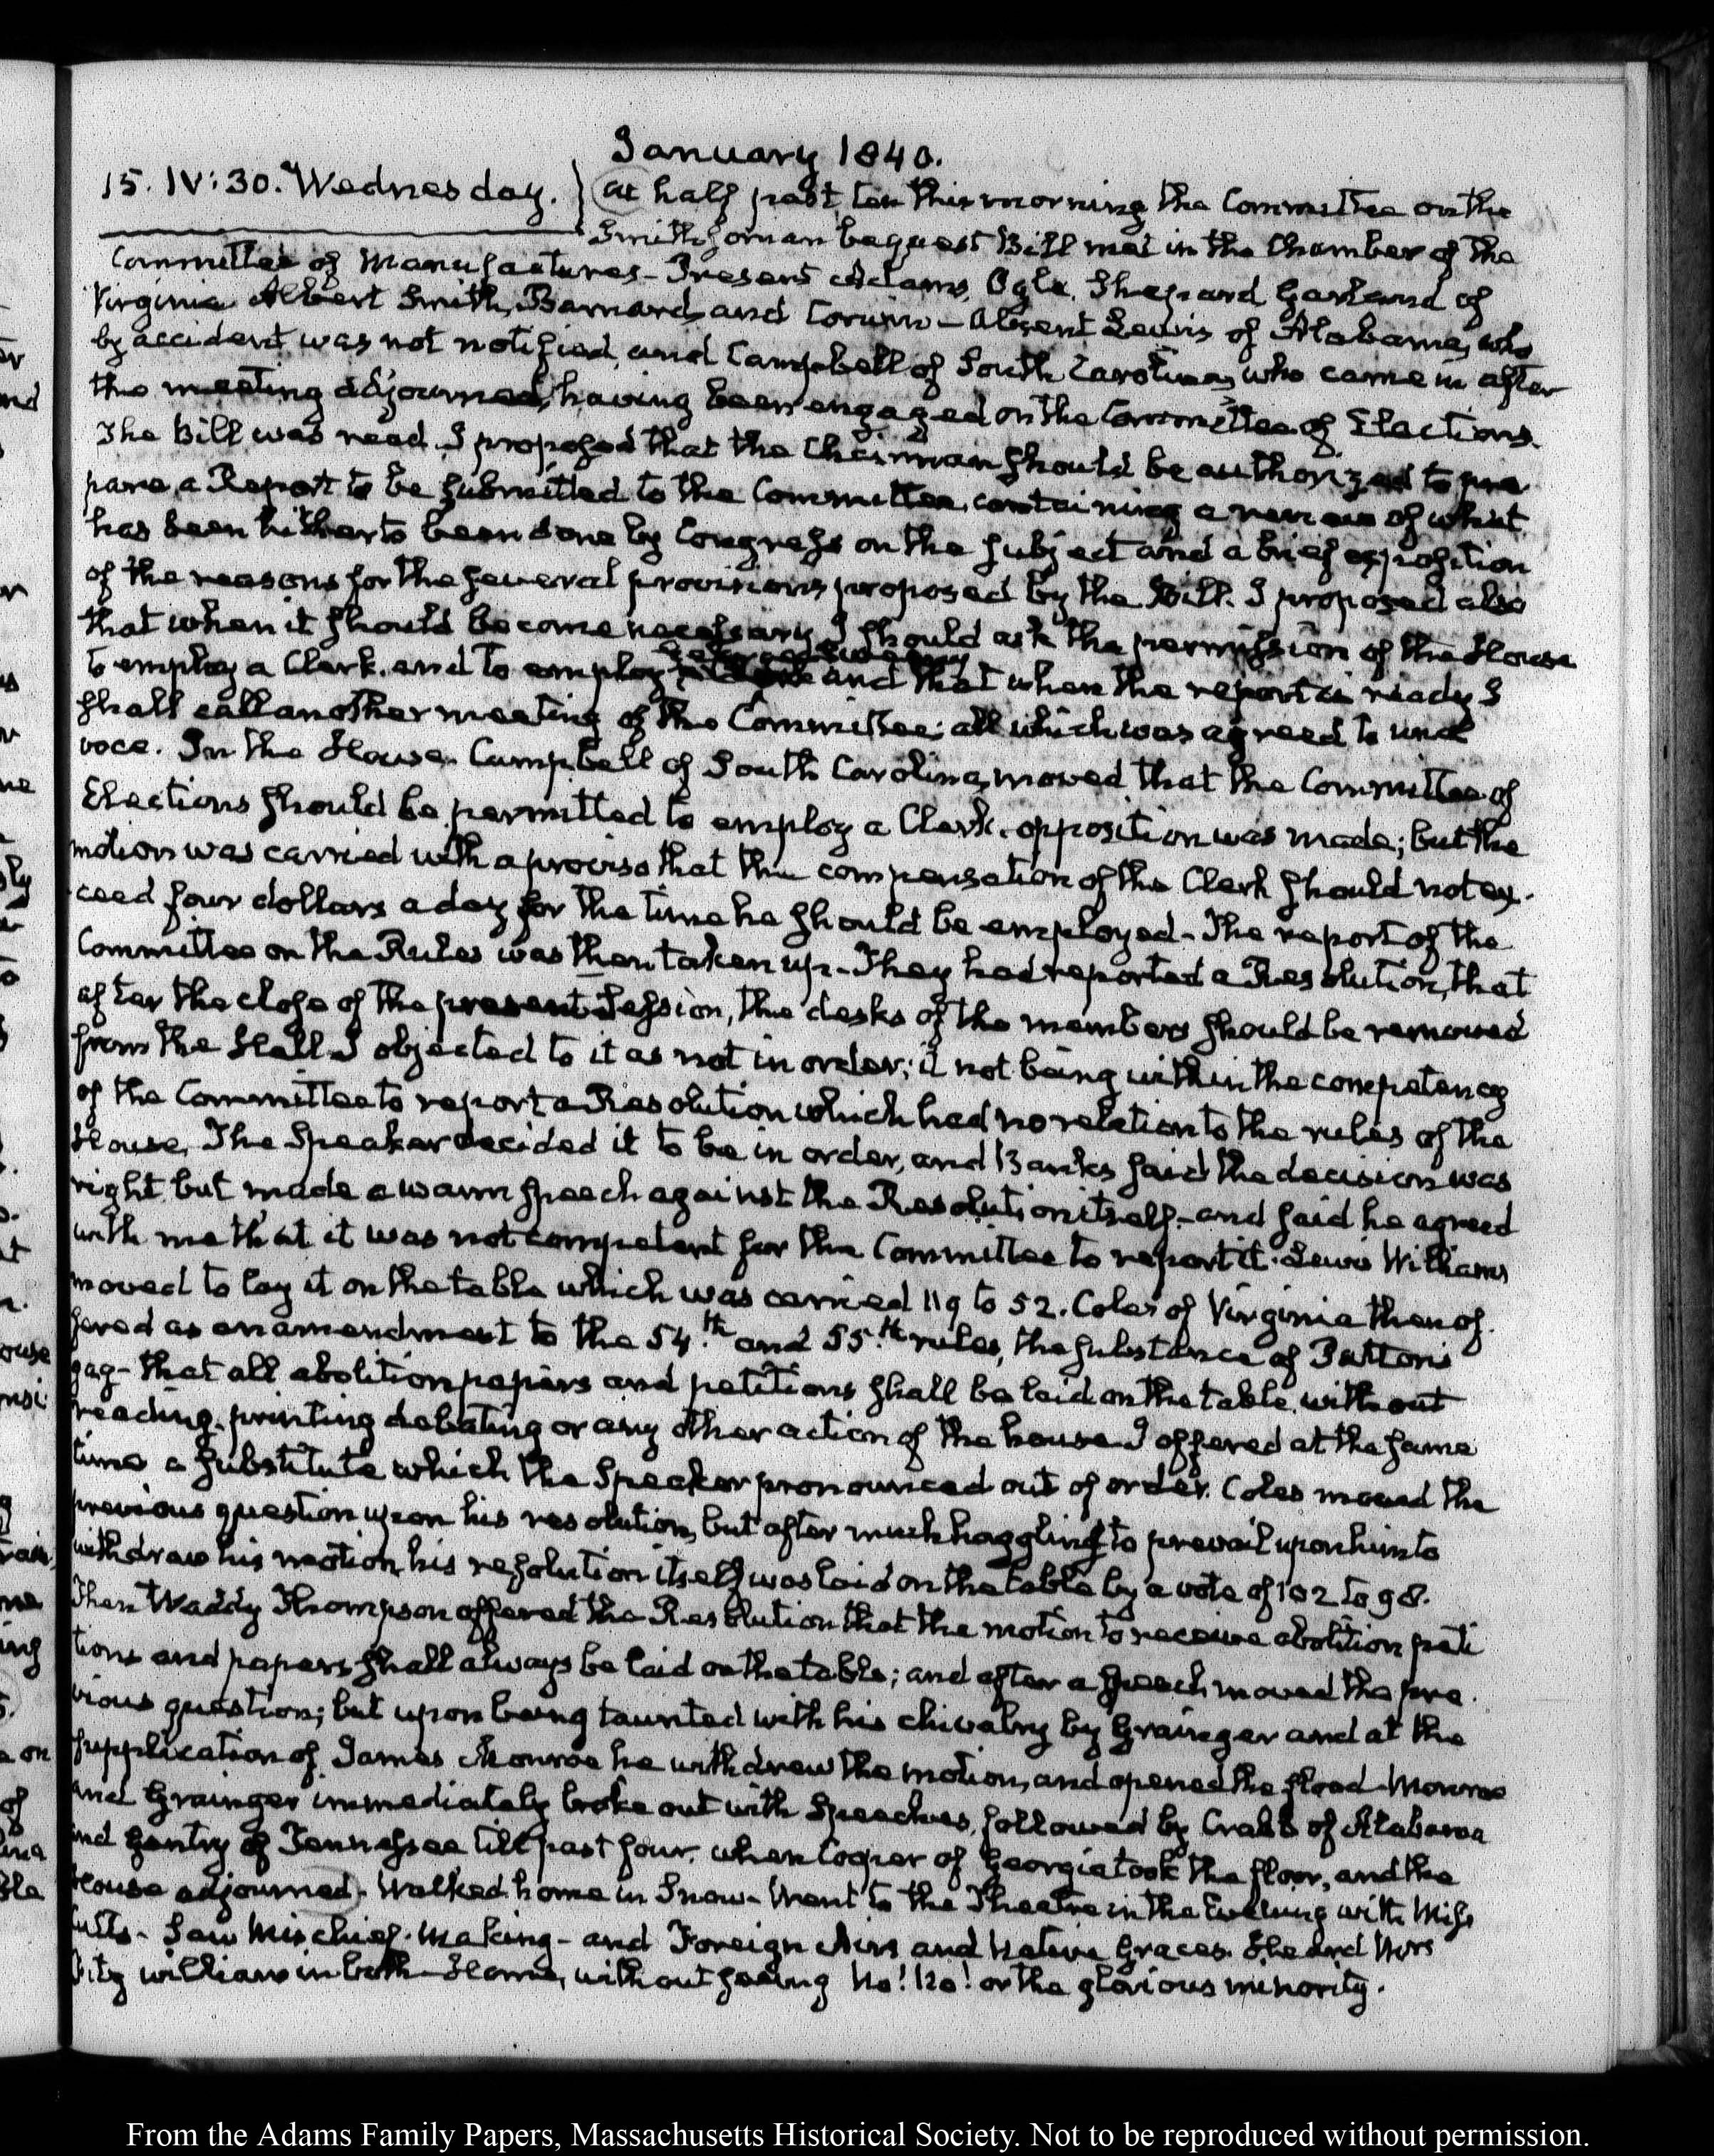 January 1840.
15. IV:30. Wednesday. } At half past ten this morning the Committee on the
Smithsonian bequest Bill met in the Chamber of the
Committee of Manufactures – Present Adams, Ogle, Shepard Garland of
Virginia Albert Smith, Barnard, and Corwin – Absent Lewis of Alabama, who
by accident was not notified, and Campbell of South Carolina, who came in after
the meeting adjourned, having been engaged on the Committee of Elections.
The Bill was read. I proposed that the Chairman should be authorized to pre
pare a Report to be submitted to the Committee, containing a review of what
has been hitherto been done by Congress on the subject and a brief exposition
of the reasons for the several provisions proposed by the Bill. I proposed also
that when it should become necessary I should ask the permission of the House
to employ a Clerk, and to employ and that when the report is ready I
shall call another meeting of the Committee; all which was agreed to una
voce. In the House Campbell of South Carolina, moved that the Committee of
Elections should be permitted to employ a Clerk. opposition was made; but the
motion was carried with a proviso that the compensation of the Clerk should not ex-
ceed four dollars a day for the time he should be employed – The report of the
Committee on the Rules was then taken up – They had reported a Resolution, that
after the close of the present Session, the desks of the members should be removed
from the Hall. I objected to it as not in order; it not being within the competency
of the Committee to report a Resolution which had no relation to the rules of the
House. The Speaker decided it to be in order, and Banks said the decision was
right, but made a warm speech against the Resolution itself – and said he agreed
with me that it was not competent for the Committee to report it. Lewis Williams
moved to lay it on the table which was carried 119 to 52. Coles of Virginia then of-
fered as an amendment to the 54.th and 55.th rules, the substance of Patton's
gag – that all abolition papers and petitions shall be laid on the table, without
reading, printing debating or any other action of the house I offered at the same
time a substitute which the Speaker pronounced out of order. Coles moved the
previous question upon his resolution, but after much haggling to prevail upon him to
withdraw his motion, his resolution itself was laid on the table by a vote of 102 to 98.
Then Waddy Thompson offered the Resolution that the motion to receive abolition peti
tions and papers shall always be laid on the table; and after a speech moved the pre-
vious question; but upon being taunted with his chivalry by Grainger and at the
supplication of James Monroe he withdrew the motion, and opened the flood – Monroe
and Grainger immediately broke out with Speeches, followed by Crabb of Alabama
and Gentry of Tennessee till past four, when Cooper of Georgia took the floor, and the
House adjourned – Walked home in Snow – Went to the Theatre in the Evening with Miss
Cutts – Saw Mischief-Making – and Foreign Airs and Native Graces. She and Mrs
Fitzwilliam in both – Home, without seeing No! No! or the glorious minority.
From the Adams Family Papers, Massachusetts Historical Society. Not to be reproduced without permission.